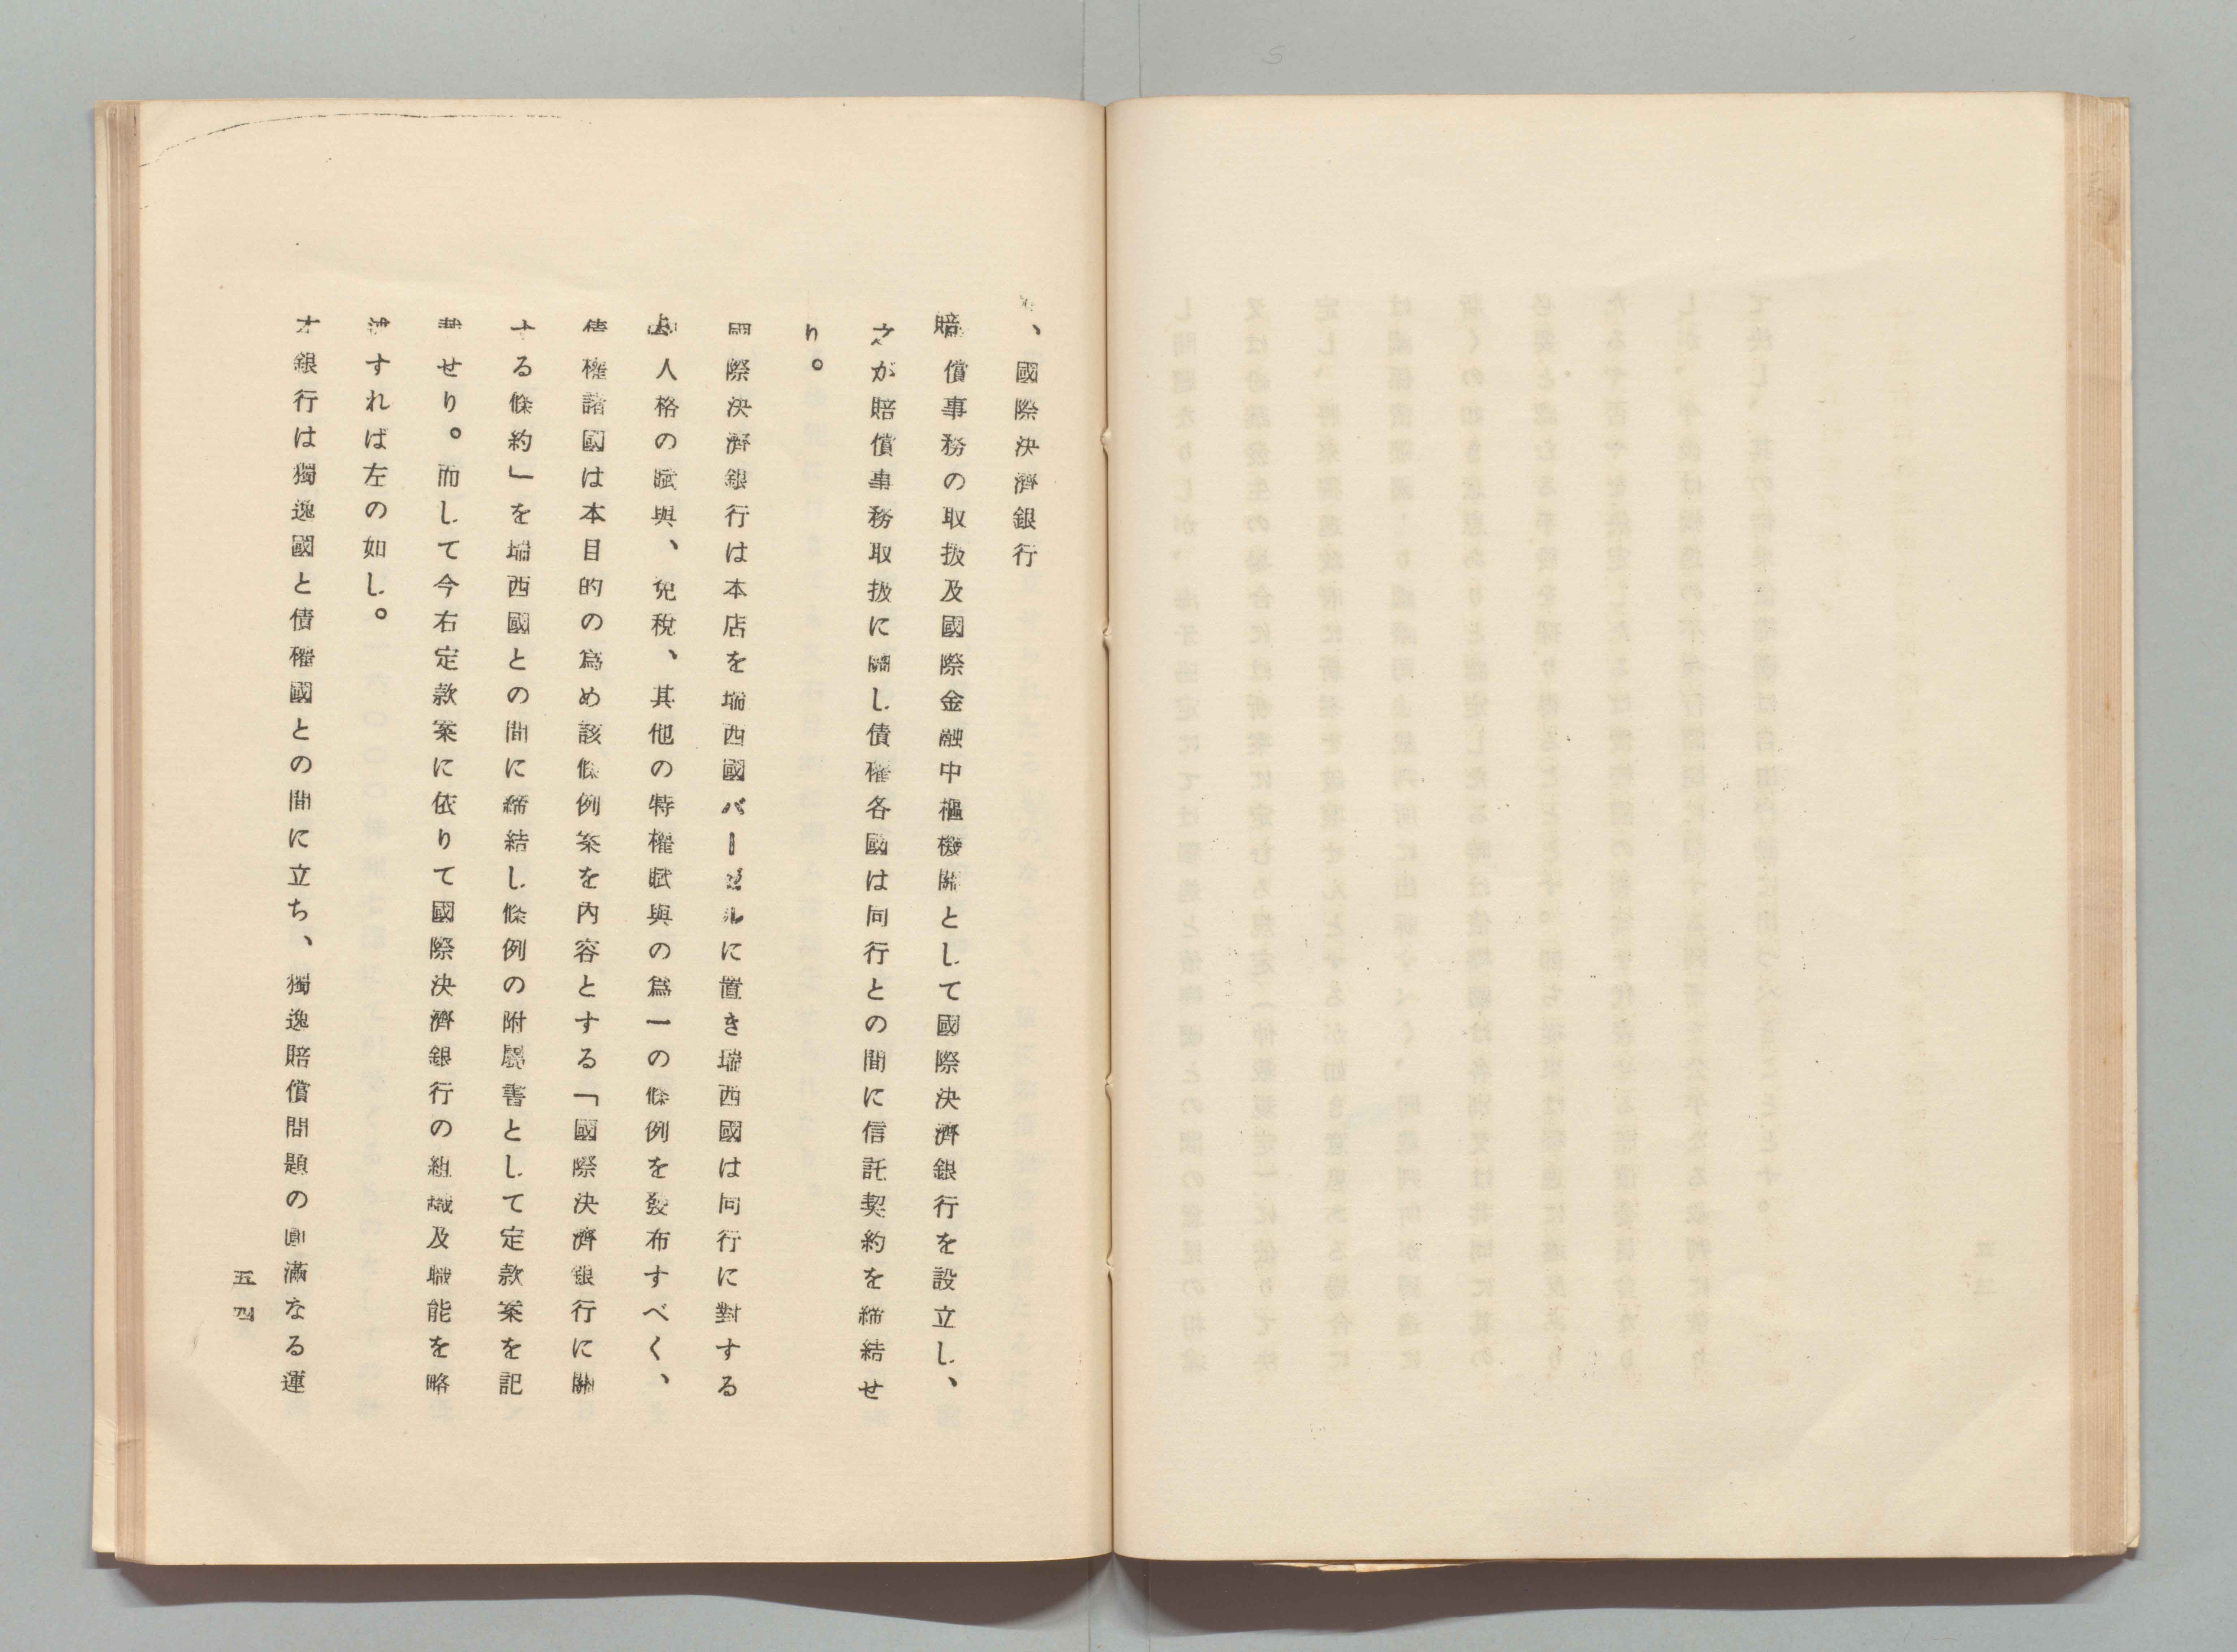 、國際決濟銀行
賠償事務の取扱及國際金融中樞機關として國際決濟銀行を設立し、
之が賠償事務取扱に關し債權各國は同行との間に信託契約を締結せ
り。
國際決濟銀行は本店を瑞西國バーゼルに置き瑞西國は同行に對する
法人格の賦與、免稅、其他の特權賦與の爲一の條例を發布すべく、
債權諸國は本目的の爲め該條例案を內容とする「國際決濟銀行に關
する條約」を瑞西國との間に締結し條例の附屬書として定款案を記
載せり。而して今右定款案に依りて國際決濟銀行の組織及職能を略
述すれば左の如し。
本銀行は獨逸國と債權國との間に立ち、獨逸賠償問題の圓滿なる運
五四